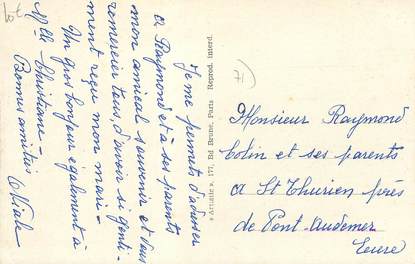 Je me permets d'adresser
à Raymond et à ses parents
mon amical souvenir et vous
remercier tous, d'avoir si genti-
ment reçu mon mari -
Un gros bonjour également à
Melle Christiane -
Bonnes amitiés
« Artistic », 171, Bd Brune, Paris Reprod. interd.
71)
Monsieur Raymond
et ses parents
à St Thurien près
de Pont-Audemer
Eure